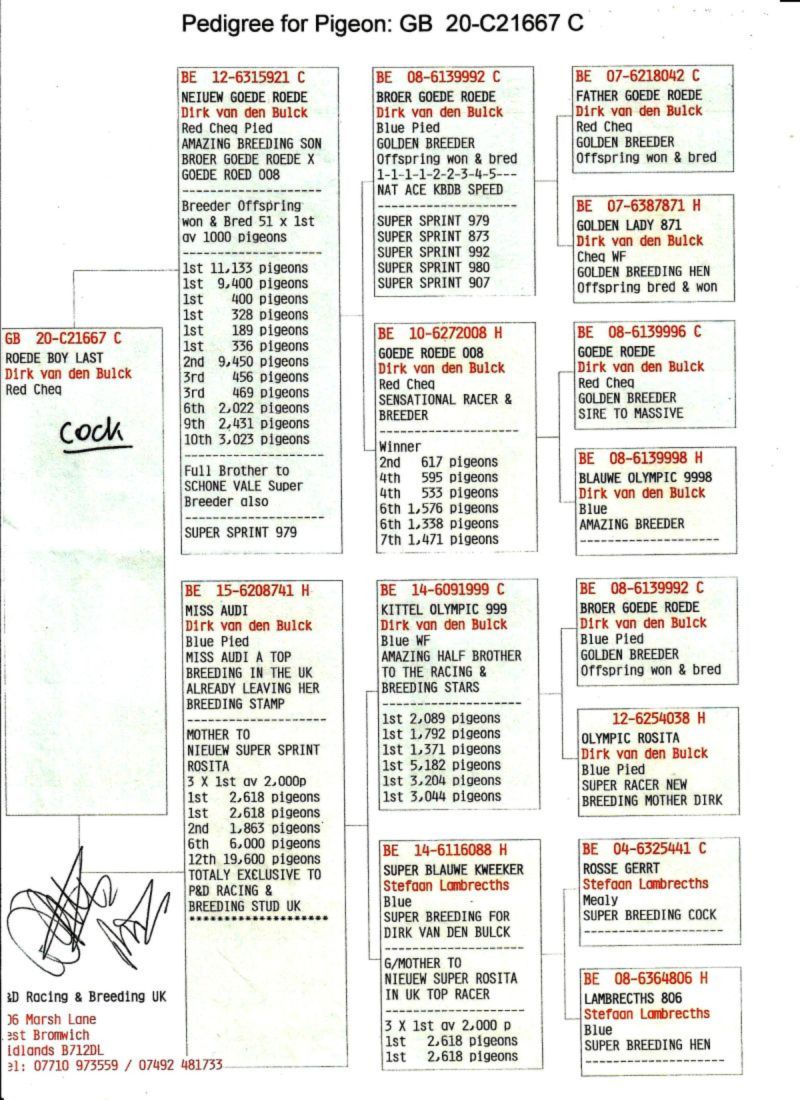 Pedigree for Pigeon: GB 20-C21667 C
GB 20-C21667 C
ROEDE BOY LAST
Dirk van den Bulck
Red Cheq
cock
BE 12-6315921 C
NEIUEW GOEDE ROEDE
Dirk van den Bulck
Red Cheq Pied
AMAZING BREEDING SON
BROER GOEDE ROEDE X
GOEDE ROED 008
--------------------
Breeder Offspring
won & Bred 51 x 1st
av 1000 pigeons
--------------------
1st 11,133 pigeons
1st 9,400 pigeons
1st 400 pigeons
1st 328 pigeons
1st 189 pigeons
1st 336 pigeons
2nd 9,450 pigeons
3rd 456 pigeons
3rd 469 pigeons
6th 2,022 pigeons
9th 2,431 pigeons
10th 3,023 pigeons
--------------------
Full Brother to
SCHONE VALE Super
Breeder also
--------------------
SUPER SPRINT 979
BE 15-6208741 H
MISS AUDI
Dirk van den Bulck
Blue Pied
MISS AUDI A TOP
BREEDING IN THE UK
ALREADY LEAVING HER
BREEDING STAMP
--------------------
MOTHER TO
NIEUEW SUPER SPRINT
ROSITA
3 X 1st av 2,000p
1st 2,618 pigeons
1st 2,618 pigeons
2nd 1,863 pigeons
6th 6,000 pigeons
12th 19,600 pigeons
TOTALY EXCLUSIVE TO
P&D RACING &
BREEDING STUD UK
********************
BE 08-6139992 C
BROER GOEDE ROEDE
Dirk van den Bulck
Blue Pied
GOLDEN BREEDER
Offspring won & bred
1-1-1-1-2-2-3-4-5---
NAT ACE KBDB SPEED
--------------------
SUPER SPRINT 979
SUPER SPRINT 873
SUPER SPRINT 992
SUPER SPRINT 980
SUPER SPRINT 907
BE 10-6272008 H
GOEDE ROEDE 008
Dirk van den Bulck
Red Cheq
SENSATIONAL RACER &
BREEDER
--------------------
Winner
2nd 617 pigeons
4th 595 pigeons
4th 533 pigeons
6th 1,576 pigeons
6th 1,338 pigeons
7th 1,471 pigeons
BE 14-6091999 C
KITTEL OLYMPIC 999
Dirk van den Bulck
Blue WF
AMAZING HALF BROTHER
TO THE RACING &
BREEDING STARS
--------------------
1st 2,089 pigeons
1st 1,792 pigeons
1st 1,371 pigeons
1st 5,182 pigeons
1st 3,204 pigeons
1st 3,044 pigeons
BE 14-6116088 H
SUPER BLAUWE KWEEKER
Stefaan Lambrecths
Blue
SUPER BREEDING FOR
DIRK VAN DEN BULCK
--------------------
G/MOTHER TO
NIEUEW SUPER ROSITA
IN UK TOP RACER
--------------------
3 X 1st av 2,000 p
1st 2,618 pigeons
1st 2,618 pigeons
BE 07-6218042 C
FATHER GOEDE ROEDE
Dirk van den Bulck
Red Cheq
GOLDEN BREEDER
Offspring won & bred
BE 07-6387871 H
GOLDEN LADY 871
Dirk van den Bulck
Cheq WF
GOLDEN BREEDING HEN
Offspring bred & won
BE 08-6139996 C
GOEDE ROEDE
Dirk van den Bulck
Red Cheq
GOLDEN BREEDER
SIRE TO MASSIVE
BE 08-6139998 H
BLAUWE OLYMPIC 9998
Dirk van den Bulck
Blue
AMAZING BREEDER
--------------------
BE 08-6139992 C
BROER GOEDE ROEDE
Dirk van den Bulck
Blue Pied
GOLDEN BREEDER
Offspring won & bred
12-6254038 H
OLYMPIC ROSITA
Dirk van den Bulck
Blue Pied
SUPER RACER NEW
BREEDING MOTHER DIRK
BE 04-6325441 C
ROSSE GERRT
Stefaan Lambrecths
Mealy
SUPER BREEDING COCK
--------------------
BE 08-6364806 H
LAMBRECTHS 806
Stefaan Lambrecths
Blue
SUPER BREEDING HEN
--------------------
&D Racing & Breeding UK
06 Marsh Lane
est Bromwich
idlands B712DL
el: 07710 973559 / 07492 481733